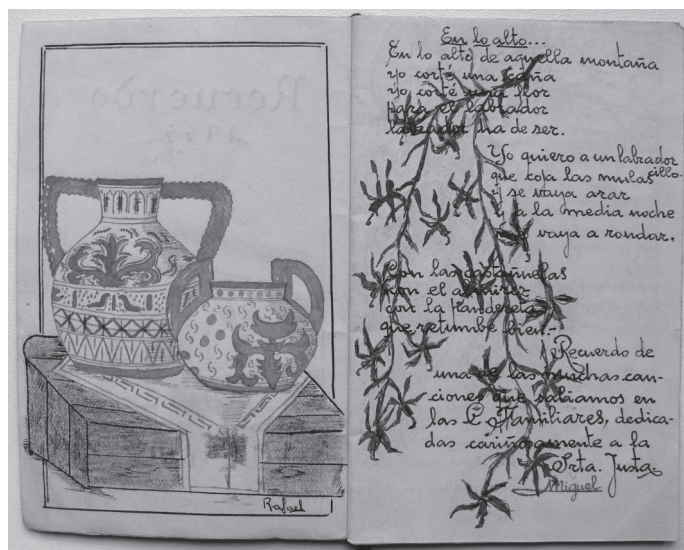 Recuerdo
Rafael
En lo alto...
En lo alto de aquella montaña
yo corté una caña
yo corté una flor
para el labrador
labrador ha de ser.
Yo quiero a un labrador
cillo.
que coja las mulas
y se vaya arar
y a la media noche
vaya a rondar.
Con las castañuelas
con el almirez
con la pandereta
que retumbe bien.-
Recuerdo de
una de las muchas can-
ciones que salíamos en
las C. Familiares, dedica-
das cariñosamente a la
Srta. Justa.
Miguel